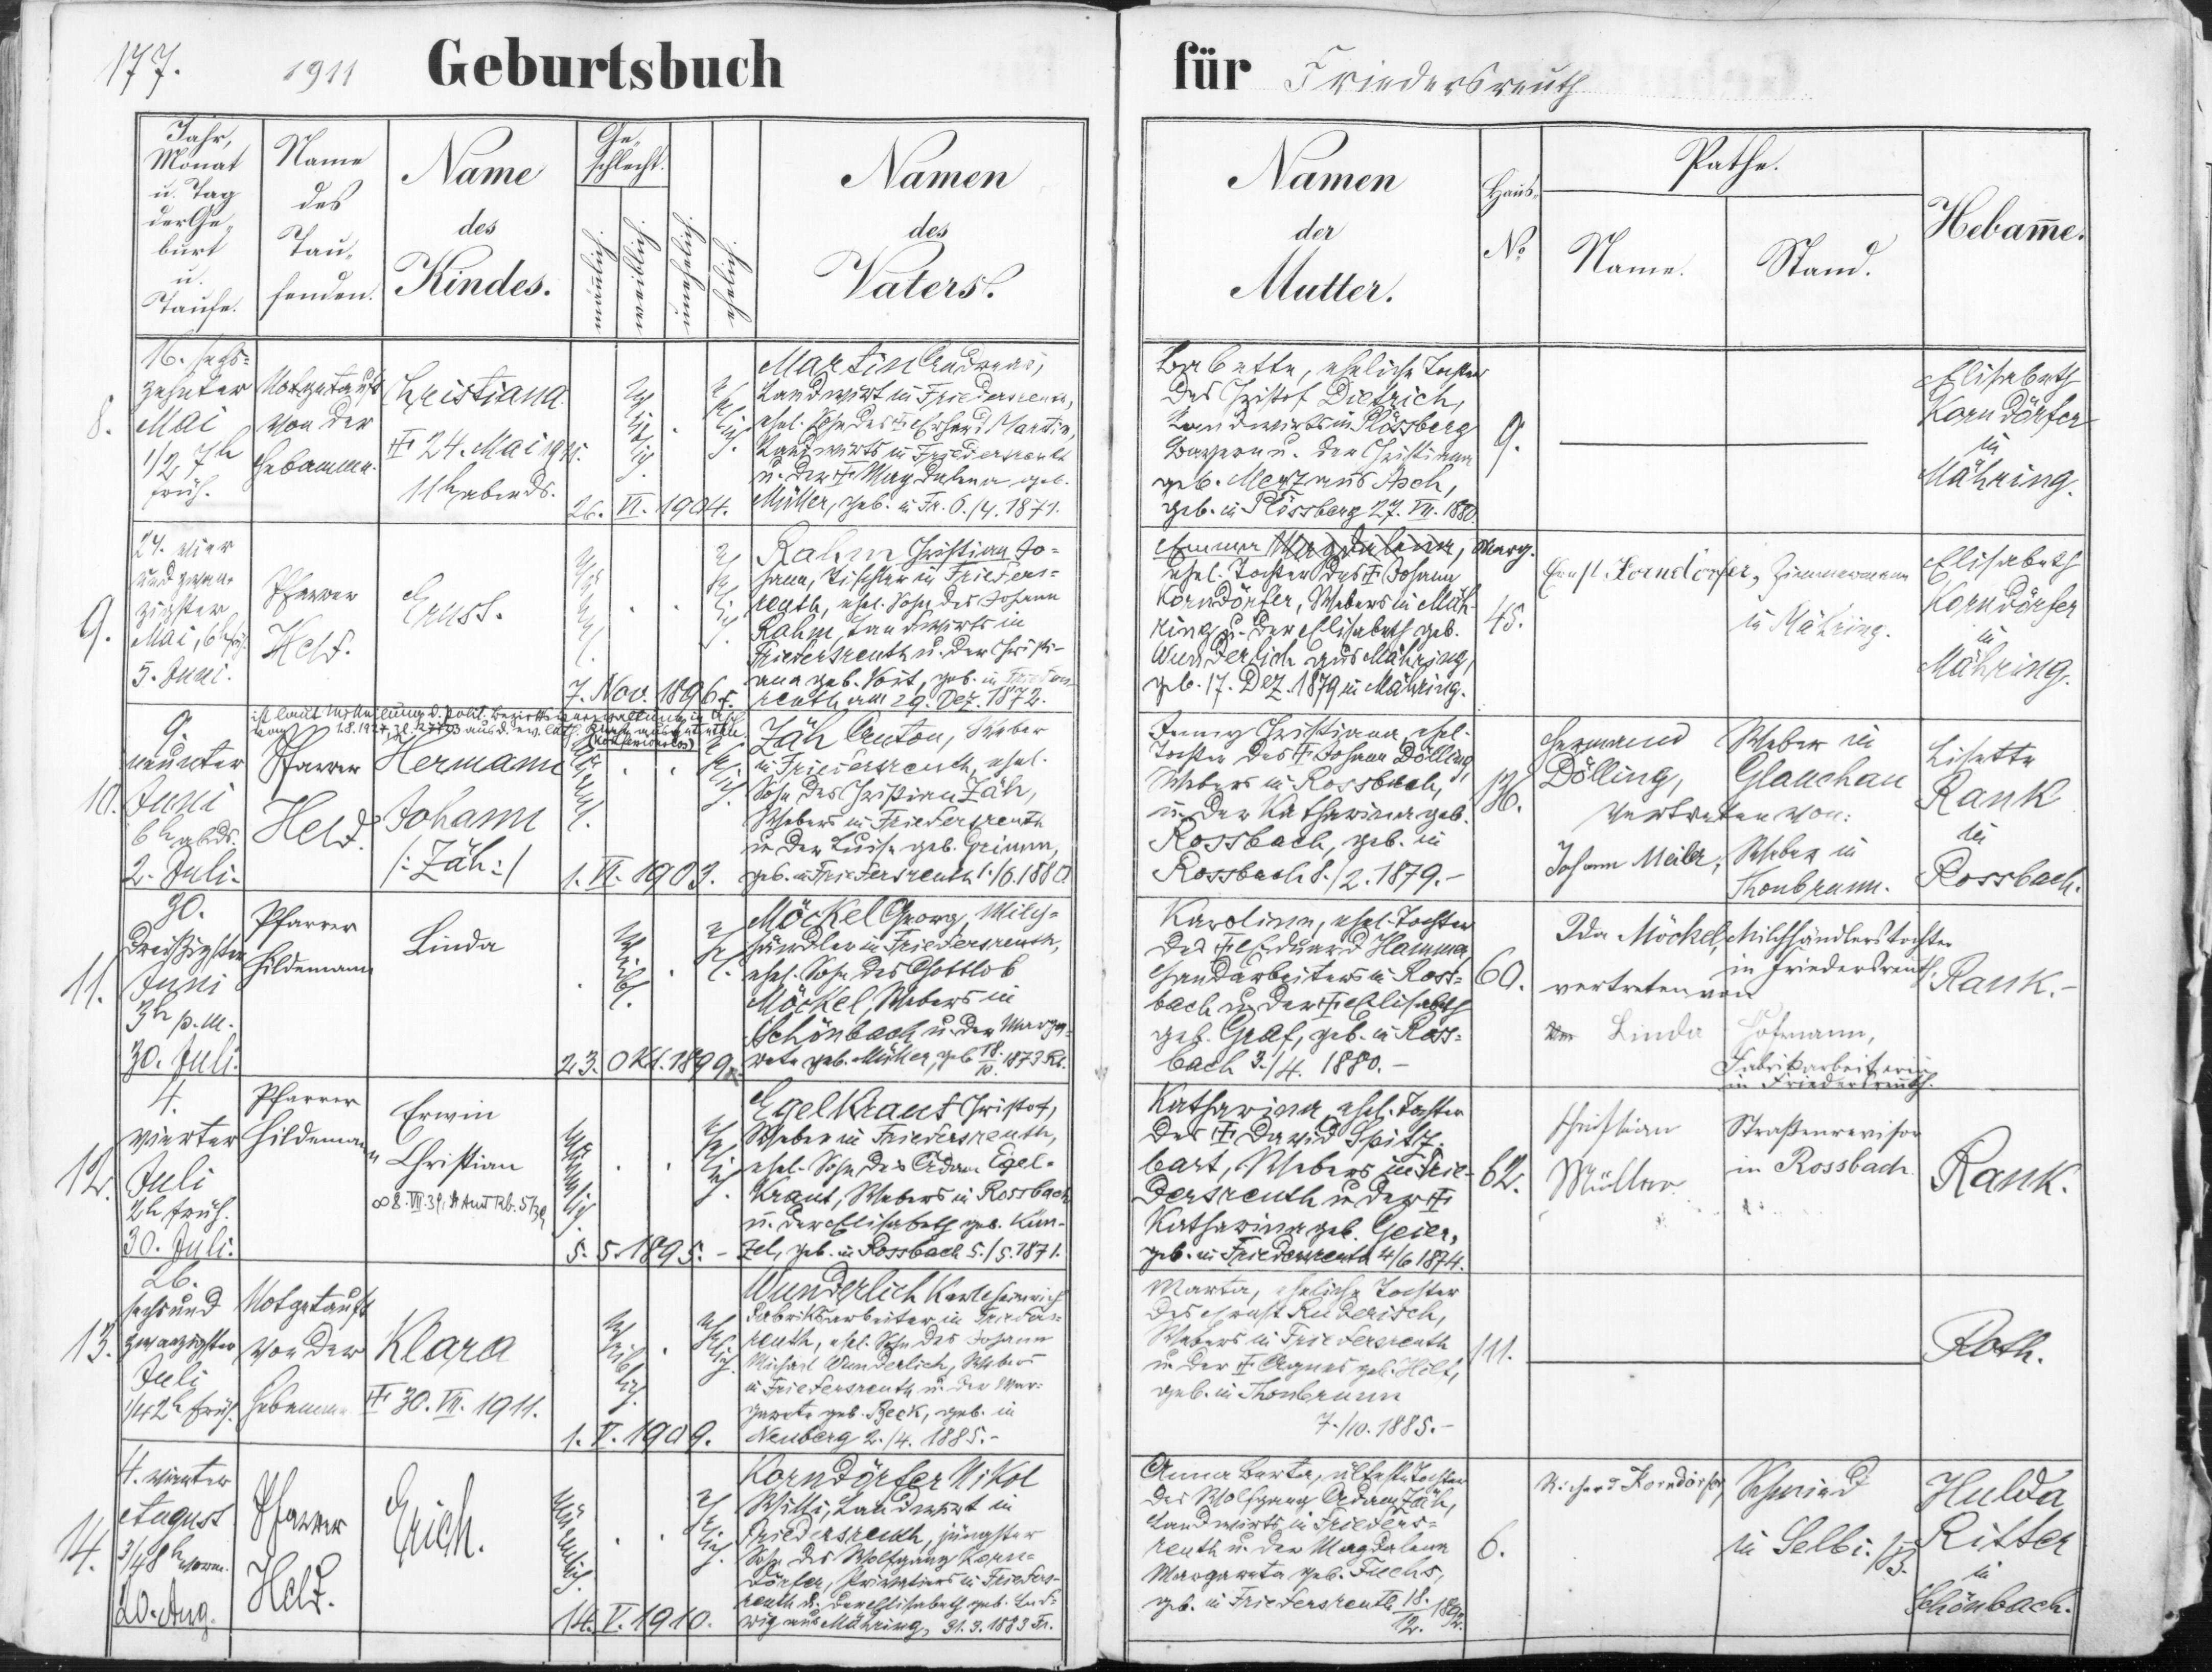 177.
1911
Geburtsbuch
für Friedersreuth
Jahr,
Monat
u. Tag
der Ge-
burt
u.
Taufe.
Name
des
Tau-
fenden.
Name
des
Kindes.
Ge-
schlecht.
männlich.
weiblich.
unehelich.
ehelich.
Namen
des
Vaters.
Namen
der
Mutter.
Haus-
No
Pathe.
Name.
Stand.
Hebamme.
8.
16. sechs-
zehnter
Mai
1/2 7h
früh.
Notgetauft
von der
Hebamme.
Christiana
24. Mai 1911.
11h abends.
26. VI. 1904.
Martin Andreas,
Landwirt in Friedersreuth,
ehel. Sohn des Erhard Martin,
Landwirts in Friedersreuth
u. der Magdalena geb.
Müller, geb. in Fr. 6./4. 1871.
Babette, eheliche Tochter
des Christof Dietrich,
Landwirts in Plössberg
Bayern u. der Christiana
geb. Merz aus Asch,
geb. in Plössberg 27. VII. 1880.
9.
Elisabeth
Korndörfer
in
Mähring.
9.
24. vier
und zwan-
zigster
Mai, 6h frh.
5. Juni.
Pfarrer
Held.
Ernst.
7. Nov. 1896.
Rahm Christian Jo-
hann, Tischler in Frieders-
reuth, ehel. Sohn des Johann
Rahm, Landwirts in
Friedersreuth u. der Christi-
ana geb. Voit, geb. in Frieders-
reuth am 29. Dez. 1872.
Emma Magdalena, Marg.
ehel. Tochter des Johann
Korndörfer, Webers in Mäh-
ring u. der Elisabeth geb.
Wunderlich aus Mähring,
geb. 17. Dez. 1879 in Mähring.
45.
Ernst Korndörfer, Zimmermann
in Mähring.
Elisabeth
Korndörfer
in
Mähring.
10.
9.
neunter
Juni
6h abds.
2. Juli.
ist laut Mitteilung d. polit. Bezirksverwaltung in Asch
vom 1.8.1927, Zl. aus d. ev. luth. Kirche ausgetreten
(Konfessionslos)
Pfarrer
Held.
Hermann
Johann
/: Zäh :/
1. VI. 1903.
Zäh Anton, Weber
in Friedersreuth, ehel.
Sohn des Christian Zäh,
Webers in Friedersreuth
u. der Luise geb. Grimm,
geb. in Friedersreuth 1./6. 1880
Jenny Christiana, ehel.
Tochter des Johann Dölling,
Webers in Rossbach,
u. der Katharina geb.
Rossbach, geb. in
Rossbach 8./2. 1879.-
136.
Hermann Weber in
Dölling, Glauchau
vertreten von:
Johann Meiler, Weber in
Thonbrunn.
Lisette
Rank
in
Rossbach.
11.
30.
dreißigster
Juni
3h p.m.
30. Juli.
Pfarrer
Hildemann
Linda
23. Okt. 1899.
Möckel Georg, Milch-
händler in Friedersreuth,
ehel. Sohn des Gottlob
Möckel, Webers in
Schönbach u. der Marga-
rete geb. Müller, geb. 18./10. 1873 Rb.
Karolina, ehel. Tochter
des Eduard Hamma,
Handarbeiters in Ross-
bach u. der Elisabeth
geb. Graf, geb. in Ross-
bach 3./4. 1880.-
60.
Ida Möckel, Milchhändlers Tochter
in Friedersreuth.
vertreten von
Linda Hofmann,
Fabrikarbeiterin
in Friedersreuth.
Rank.-
12.
4.
vierter
Juli
2h früh.
30. Juli.
Pfarrer
Hildemann
Erwin
Christian
∞ 8. VII. 39, St Amt Rb. 5/39
5. 5. 1895.-
Egelkraut Christof,
Weber in Friedersreuth,
ehel. Sohn des Adam Egel-
kraut, Webers in Rossbach
u. der Elisabeth geb. Kün-
zel, geb. in Rossbach 5./5. 1871.
Katharina, ehel. Tochter
des David Spitz-
bart, Webers in Frie-
dersreuth u. der
Katharina geb. Geier,
geb. in Friedersreuth 4/6 1874.
62.
Christian Straßenrevisor
Müller in Rossbach
Rank.
13.
26.
sechsund
zwanzigster
Juli
1/4 2h früh.
Notgetauft
von der
Hebamme
Klara
30. VII. 1911.
1. V. 1909.
Wunderlich Karl Heinrich
Fabriksarbeiter in Frieders-
reuth, ehel. Sohn des Johann
Michael Wunderlich, Webers
in Friedersreuth u. der Mar-
garete geb. Beck, geb. in
Neuberg 2./4. 1885.-
Marta, eheliche Tochter
des Ernst Ruderisch,
Webers in Friedersreuth
u. der Agnes geb. Hilf,
geb. in Thonbrunn
7./10. 1885.-
111.
Roth.
14.
4. vierter
August
3/4 8h vorm.
20. Aug.
Pfarrer
Held.
Erich.
14. V. 1910.
Korndörfer Nikol
Willi, Landwirt in
Friedersreuth, jüngster
Sohn des Wolfgang Korn-
dörfer, Privatiers in Frieders-
reuth u. der Elisabeth geb. Lud-
wig aus Mähring, 31. 3. 1883 Fr.
Anna Berta, älteste Tochter
des Wolfgang Adam Zäh,
Landwirts in Frieders-
reuth u. der Magdalena
Margareta geb. Fuchs,
geb. in Friedersreuth 18./12.
6.
Richard Korndörfer, Schmied
in Selb i. B.
Hulda
Ritter
in
Schönbach.